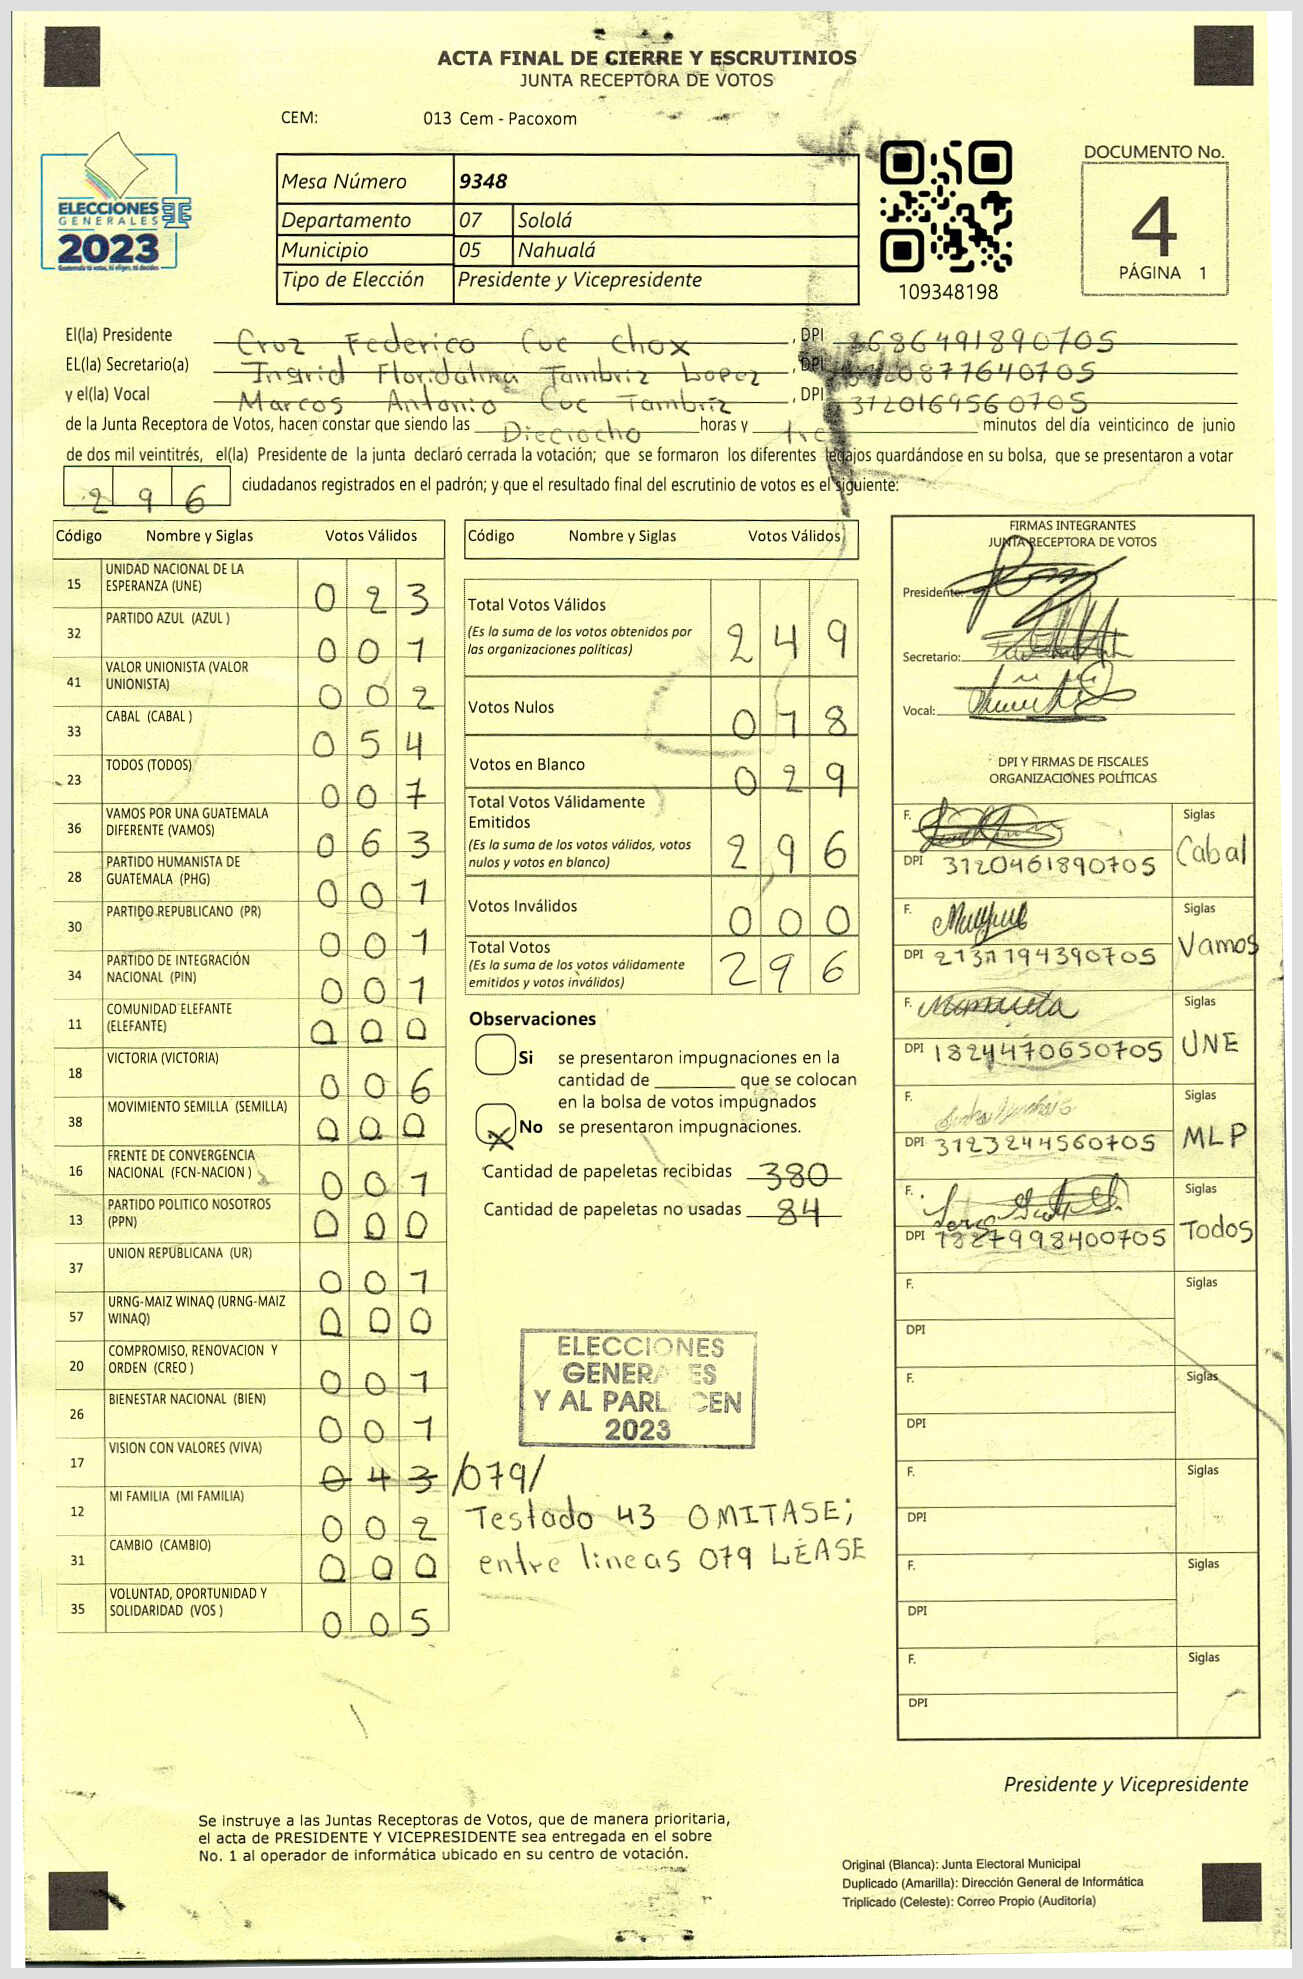 ACTA FINAL DE CIERRE Y ESCRUTINIOS
JUNTA RECEPTORA DE VOTOS
CEM: 013 Cem - Pacoxom
ELECCIONES
GENERALES
2023
Mesa Número 9348
Departamento 07 Sololá
Municipio 05 Nahualá
Tipo de Elección Presidente y Vicepresidente
109348198
DOCUMENTO No.
4
PÁGINA 1
El(la) Presidente Cruz Federico Cuc Chox, DPI 3686491890705
EL(la) Secretario(a) Ingrid Floridalma Tambriz Lopez, DPI 0877640705
y el(la) Vocal Marcos Antonio Cuc Tambriz, DPI 3120169560705
de la Junta Receptora de Votos, hacen constar que siendo las Dieciocho horas y minutos del día veinticinco de junio
de dos mil veintitrés, el(la) Presidente de la junta declaró cerrada la votación; que se formaron los diferentes legajos guardándose en su bolsa, que se presentaron a votar
296 ciudadanos registrados en el padrón; y que el resultado final del escrutinio de votos es el siguiente:
Código Nombre y Siglas Votos Válidos
15 UNIDAD NACIONAL DE LA ESPERANZA (UNE) 023
32 PARTIDO AZUL (AZUL ) 001
41 VALOR UNIONISTA (VALOR UNIONISTA) 002
33 CABAL (CABAL ) 054
23 TODOS (TODOS) 007
36 VAMOS POR UNA GUATEMALA DIFERENTE (VAMOS) 063
28 PARTIDO HUMANISTA DE GUATEMALA (PHG) 001
30 PARTIDO REPUBLICANO (PR) 001
34 PARTIDO DE INTEGRACIÓN NACIONAL (PIN) 001
11 COMUNIDAD ELEFANTE (ELEFANTE) 000
18 VICTORIA (VICTORIA) 006
38 MOVIMIENTO SEMILLA (SEMILLA) 000
16 FRENTE DE CONVERGENCIA NACIONAL (FCN-NACION ) 001
13 PARTIDO POLITICO NOSOTROS (PPN) 000
37 UNION REPUBLICANA (UR) 001
57 URNG-MAIZ WINAQ (URNG-MAIZ WINAQ) 000
20 COMPROMISO, RENOVACION Y ORDEN (CREO ) 001
26 BIENESTAR NACIONAL (BIEN) 001
17 VISION CON VALORES (VIVA) 043 /079/
12 MI FAMILIA (MI FAMILIA) 002
31 CAMBIO (CAMBIO) 000
35 VOLUNTAD, OPORTUNIDAD Y SOLIDARIDAD (VOS ) 005
Código Nombre y Siglas Votos Válidos
Total Votos Válidos 249
(Es la suma de los votos obtenidos por
las organizaciones políticas)
Votos Nulos 018
Votos en Blanco 029
Total Votos Válidamente
Emitidos 296
(Es la suma de los votos válidos, votos
nulos y votos en blanco)
Votos Inválidos 000
Total Votos 296
(Es la suma de los votos válidamente
emitidos y votos inválidos)
Observaciones
Si se presentaron impugnaciones en la
cantidad de ________ que se colocan
en la bolsa de votos impugnados
X No se presentaron impugnaciones.
Cantidad de papeletas recibidas 380
Cantidad de papeletas no usadas 84
ELECCIONES
GENERALES
Y AL PARLACEN
2023
Testado 43 OMITASE;
entre lineas 079 LÉASE
FIRMAS INTEGRANTES
JUNTA RECEPTORA DE VOTOS
Presidente:
Secretario:
Vocal:
DPI Y FIRMAS DE FISCALES
ORGANIZACIONES POLÍTICAS
F. Siglas
DPI 3120461890705 Cabal
F. Siglas
DPI Vamos
F. Siglas
DPI 1824470650705 UNE
F. Siglas
DPI 3123244560705 MLP
F. Siglas
DPI 1827998400705 Todos
F. Siglas
DPI
F. Siglas
DPI
F. Siglas
DPI
F. Siglas
DPI
F. Siglas
DPI
Presidente y Vicepresidente
Se instruye a las Juntas Receptoras de Votos, que de manera prioritaria,
el acta de PRESIDENTE Y VICEPRESIDENTE sea entregada en el sobre
No. 1 al operador de informática ubicado en su centro de votación.
Original (Blanca): Junta Electoral Municipal
Duplicado (Amarilla): Dirección General de Informática
Triplicado (Celeste): Correo Propio (Auditoría)